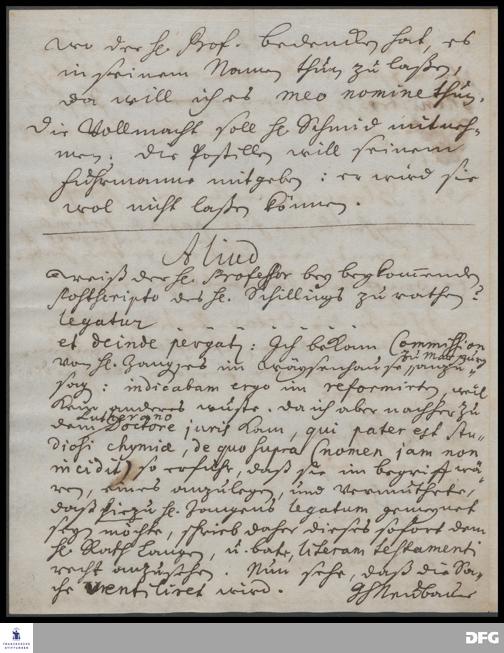 wo der H. Prof. bedencken hat, es
in seinem Namen thun zu laßen,
da will ich es meo nomine thun.
Die Vollmacht soll H. Schmid mitneh-
men. Die Postillen will seinem
Fuhrmanne mitgeben: er wird sie
wol nicht laßen können.
Aliud
Weiß der H. Professor bey beykommenden
Postscripto des H. Schillings zu rathen?
legatur
et deinde pergat: Ich bekam Commission
von H. im Wäysenhause zu Marpurg anzu-
sag: indicabam ergo im reformirten, weil
kein anderes wuste. da ich aber nachher zu
dem Lutherano Doctore juris kam, qui pater est stu-
diosi chymiæ, de quo supra (nomen jam non
incidit) so erfuhr, daß sie im begriff wä-
ren, eines anzulegen, und vermuthete,
daß hiezu H. legatum gemeynet
seyn möchte, schrieb daher dieses sofort dem
H. Rath Langen, u. bate, literam testamenti
recht anzusehen. Nun sehe, daß die Sa-
che ventiliret wird. Neubauer
FRANCKESCHE
STIFTUNGEN
DFG